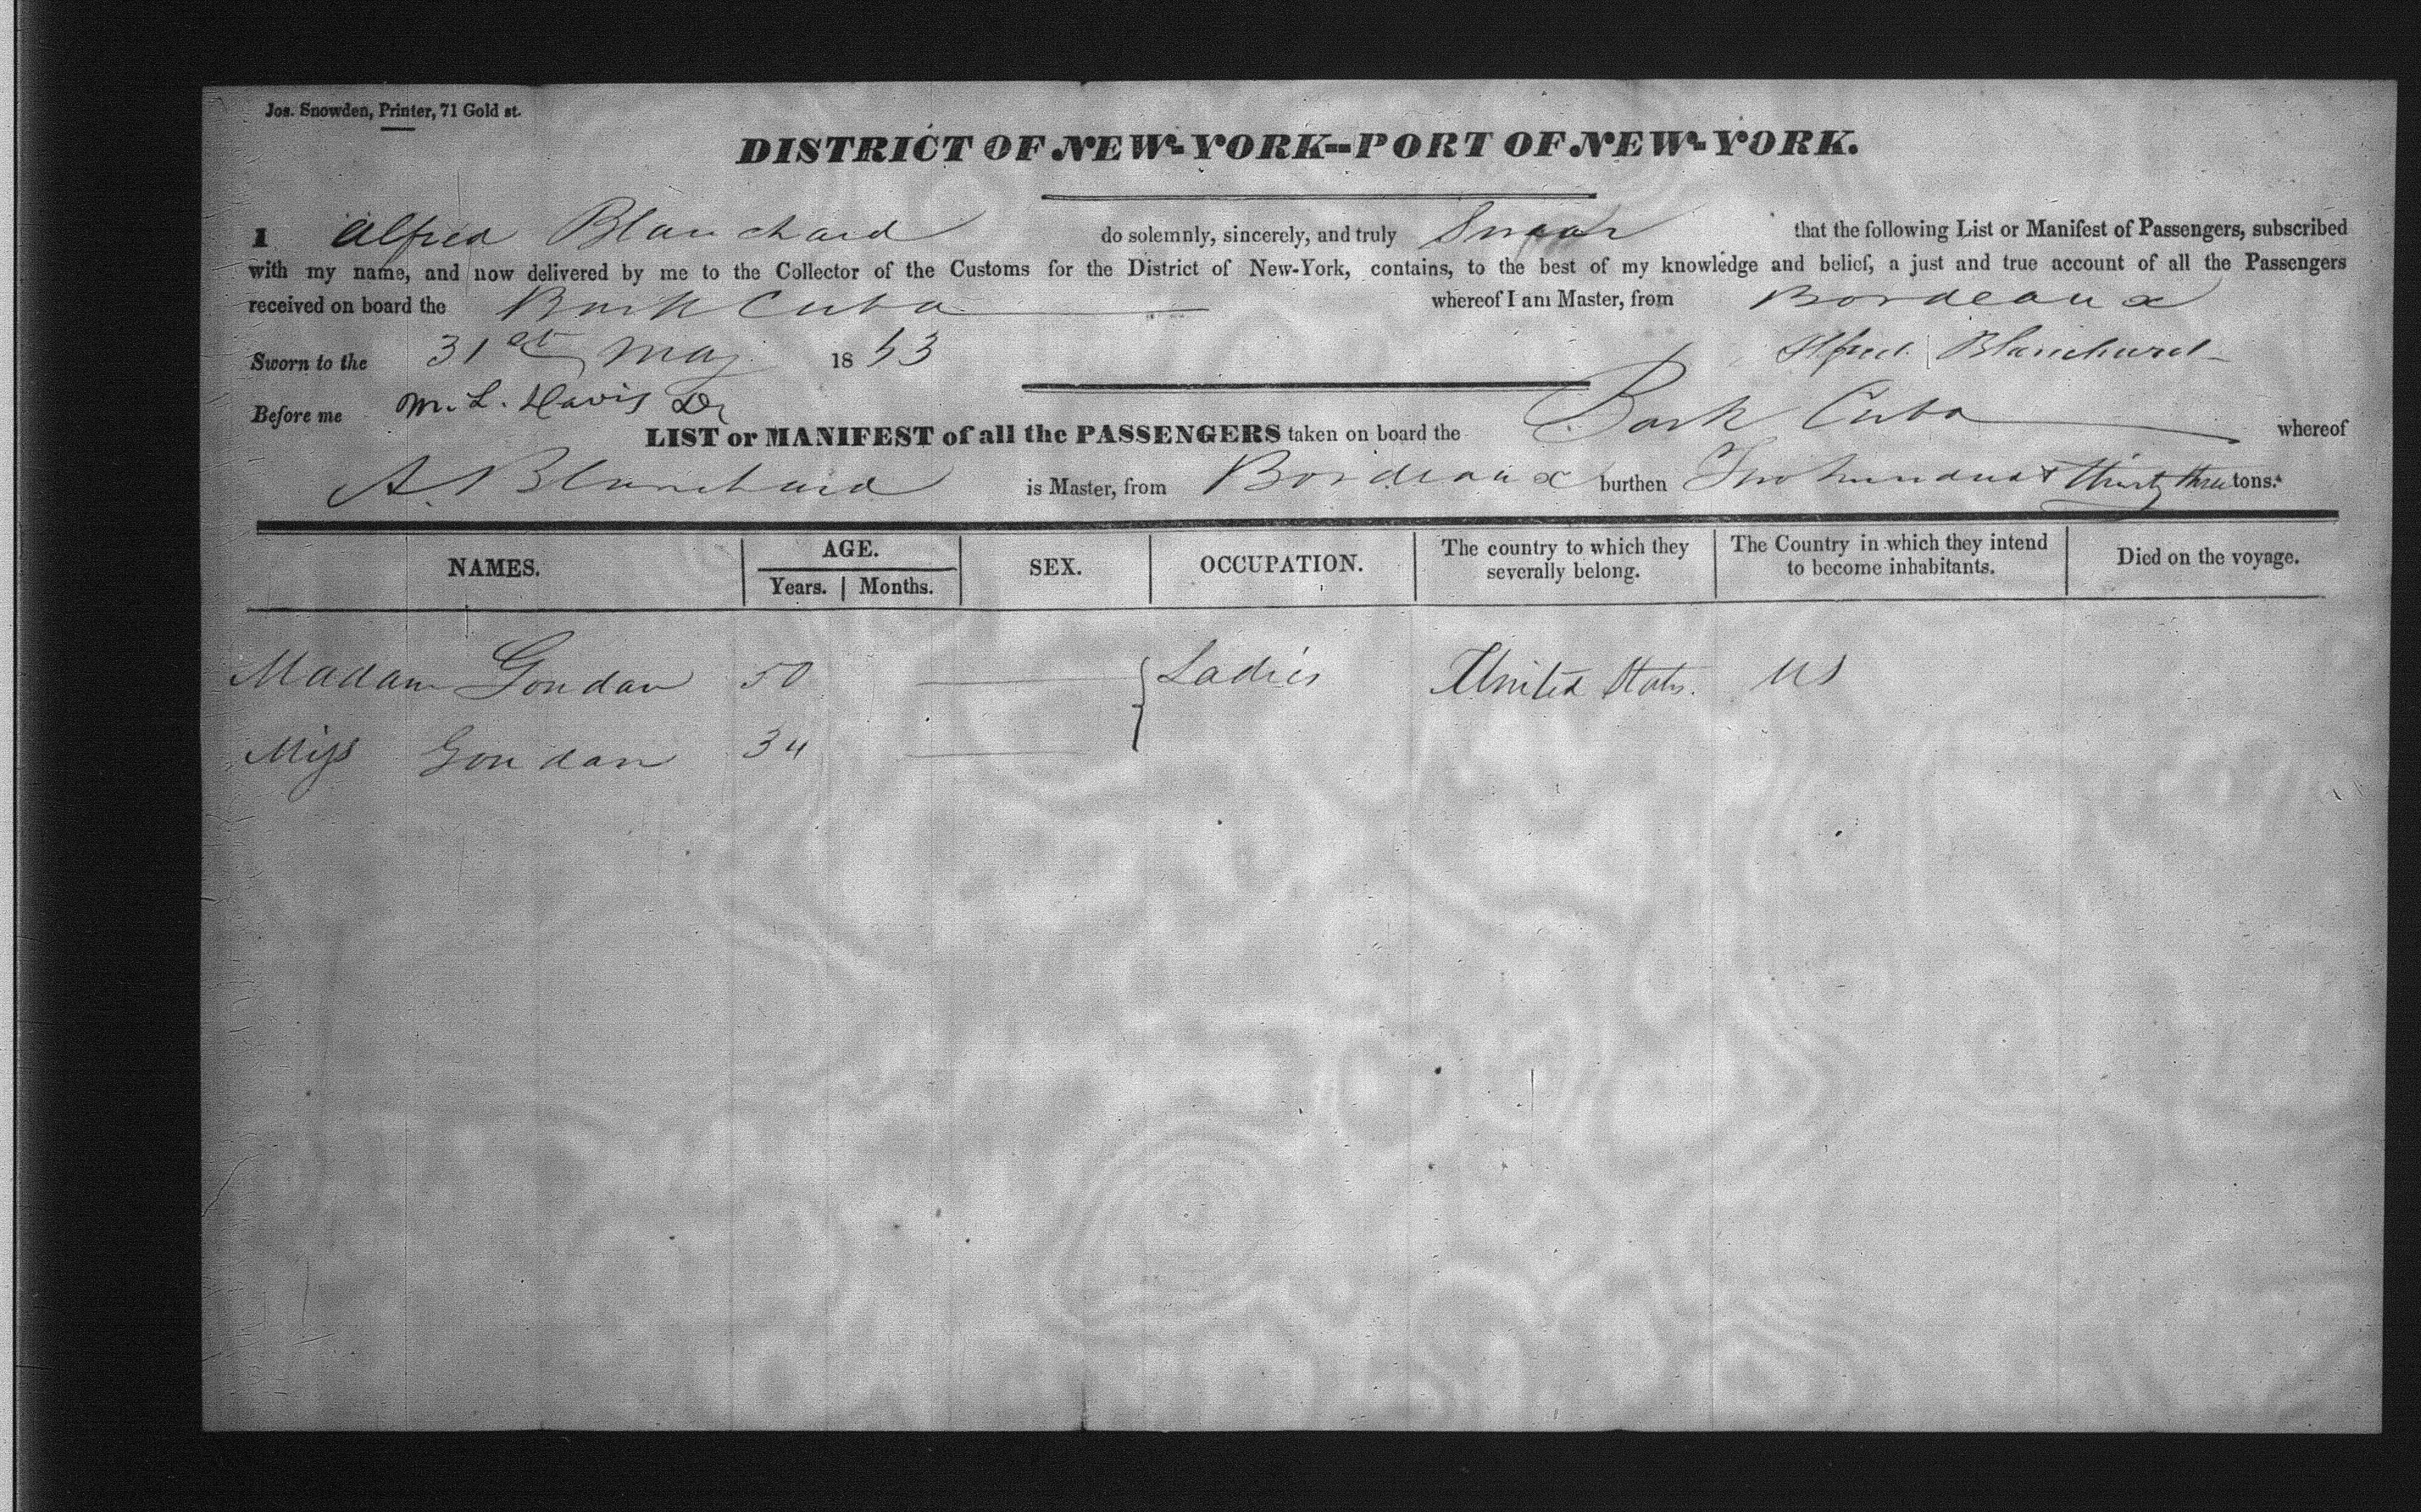 Jos. Snowden, Printer, 71 Gold st.
DISTRICT OF NEW-YORK--PORT OF NEW-YORK.
I Alfred Blanchard do solemnly, sincerely, and truly Swear that the following List or Manifest of Passengers, subscribed
with my name, and now delivered by me to the Collector of the Customs for the District of New-York, contains, to the best of my knowledge and belief, a just and true account of all the Passengers
received on board the Bark Cuba whereof I am Master, from Bordeaux
Sworn to the 31st May 1853 Alfred Blanchard
Before me M. L. Davis
LIST or MANIFEST of all the PASSENGERS taken on board the Bark Cuba whereof
A. Blanchard is Master, from Bordeaux burthen Two hundred & thirty three tons.
NAMES. AGE. SEX. OCCUPATION. The country to which they severally belong. The Country in which they intend to become inhabitants. Died on the voyage.
Years. Months.
Madam Goudan 50 Ladies United States. US
Miss Goudan 34